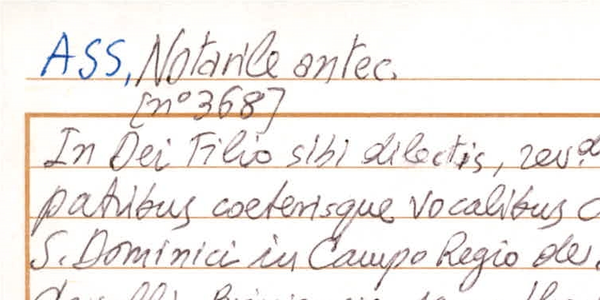 ASS, Notarile antec.
[n° 368]
In Dei Filio sibi dilectis, rev.d
patribus coeterisque vocalibus c
S. Dominici in Campo Regio de